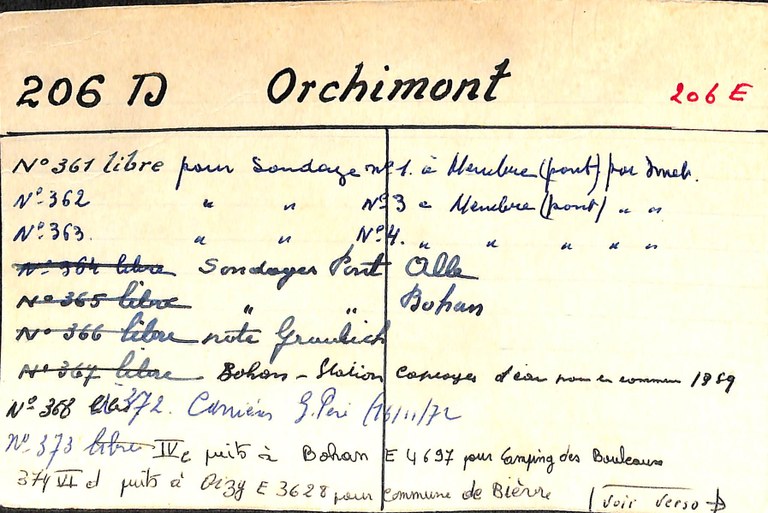 206 D Orchimont 206 E
N° 361 libre pour Sondage n° 1. à Membre (pont) par
N° 362 " " N° 3 à Membre (pont) " "
N° 363. " " N° 4. " " " " "
N° 364 libre Sondages Pont Alle
N° 365 libre " " Bohan
N° 366 libre note Graulich
N° 367 libre Bohan - Station captages d'eau pour en commun 1959
N° 368 372. Carrières G. Peré (16/11/72
N° 373 libre IV c puits à Bohan E 4697 pour Camping des Bouleaux
374 VI d puits à Oizy E 3628 pour commune de Bièvre (voir verso →)